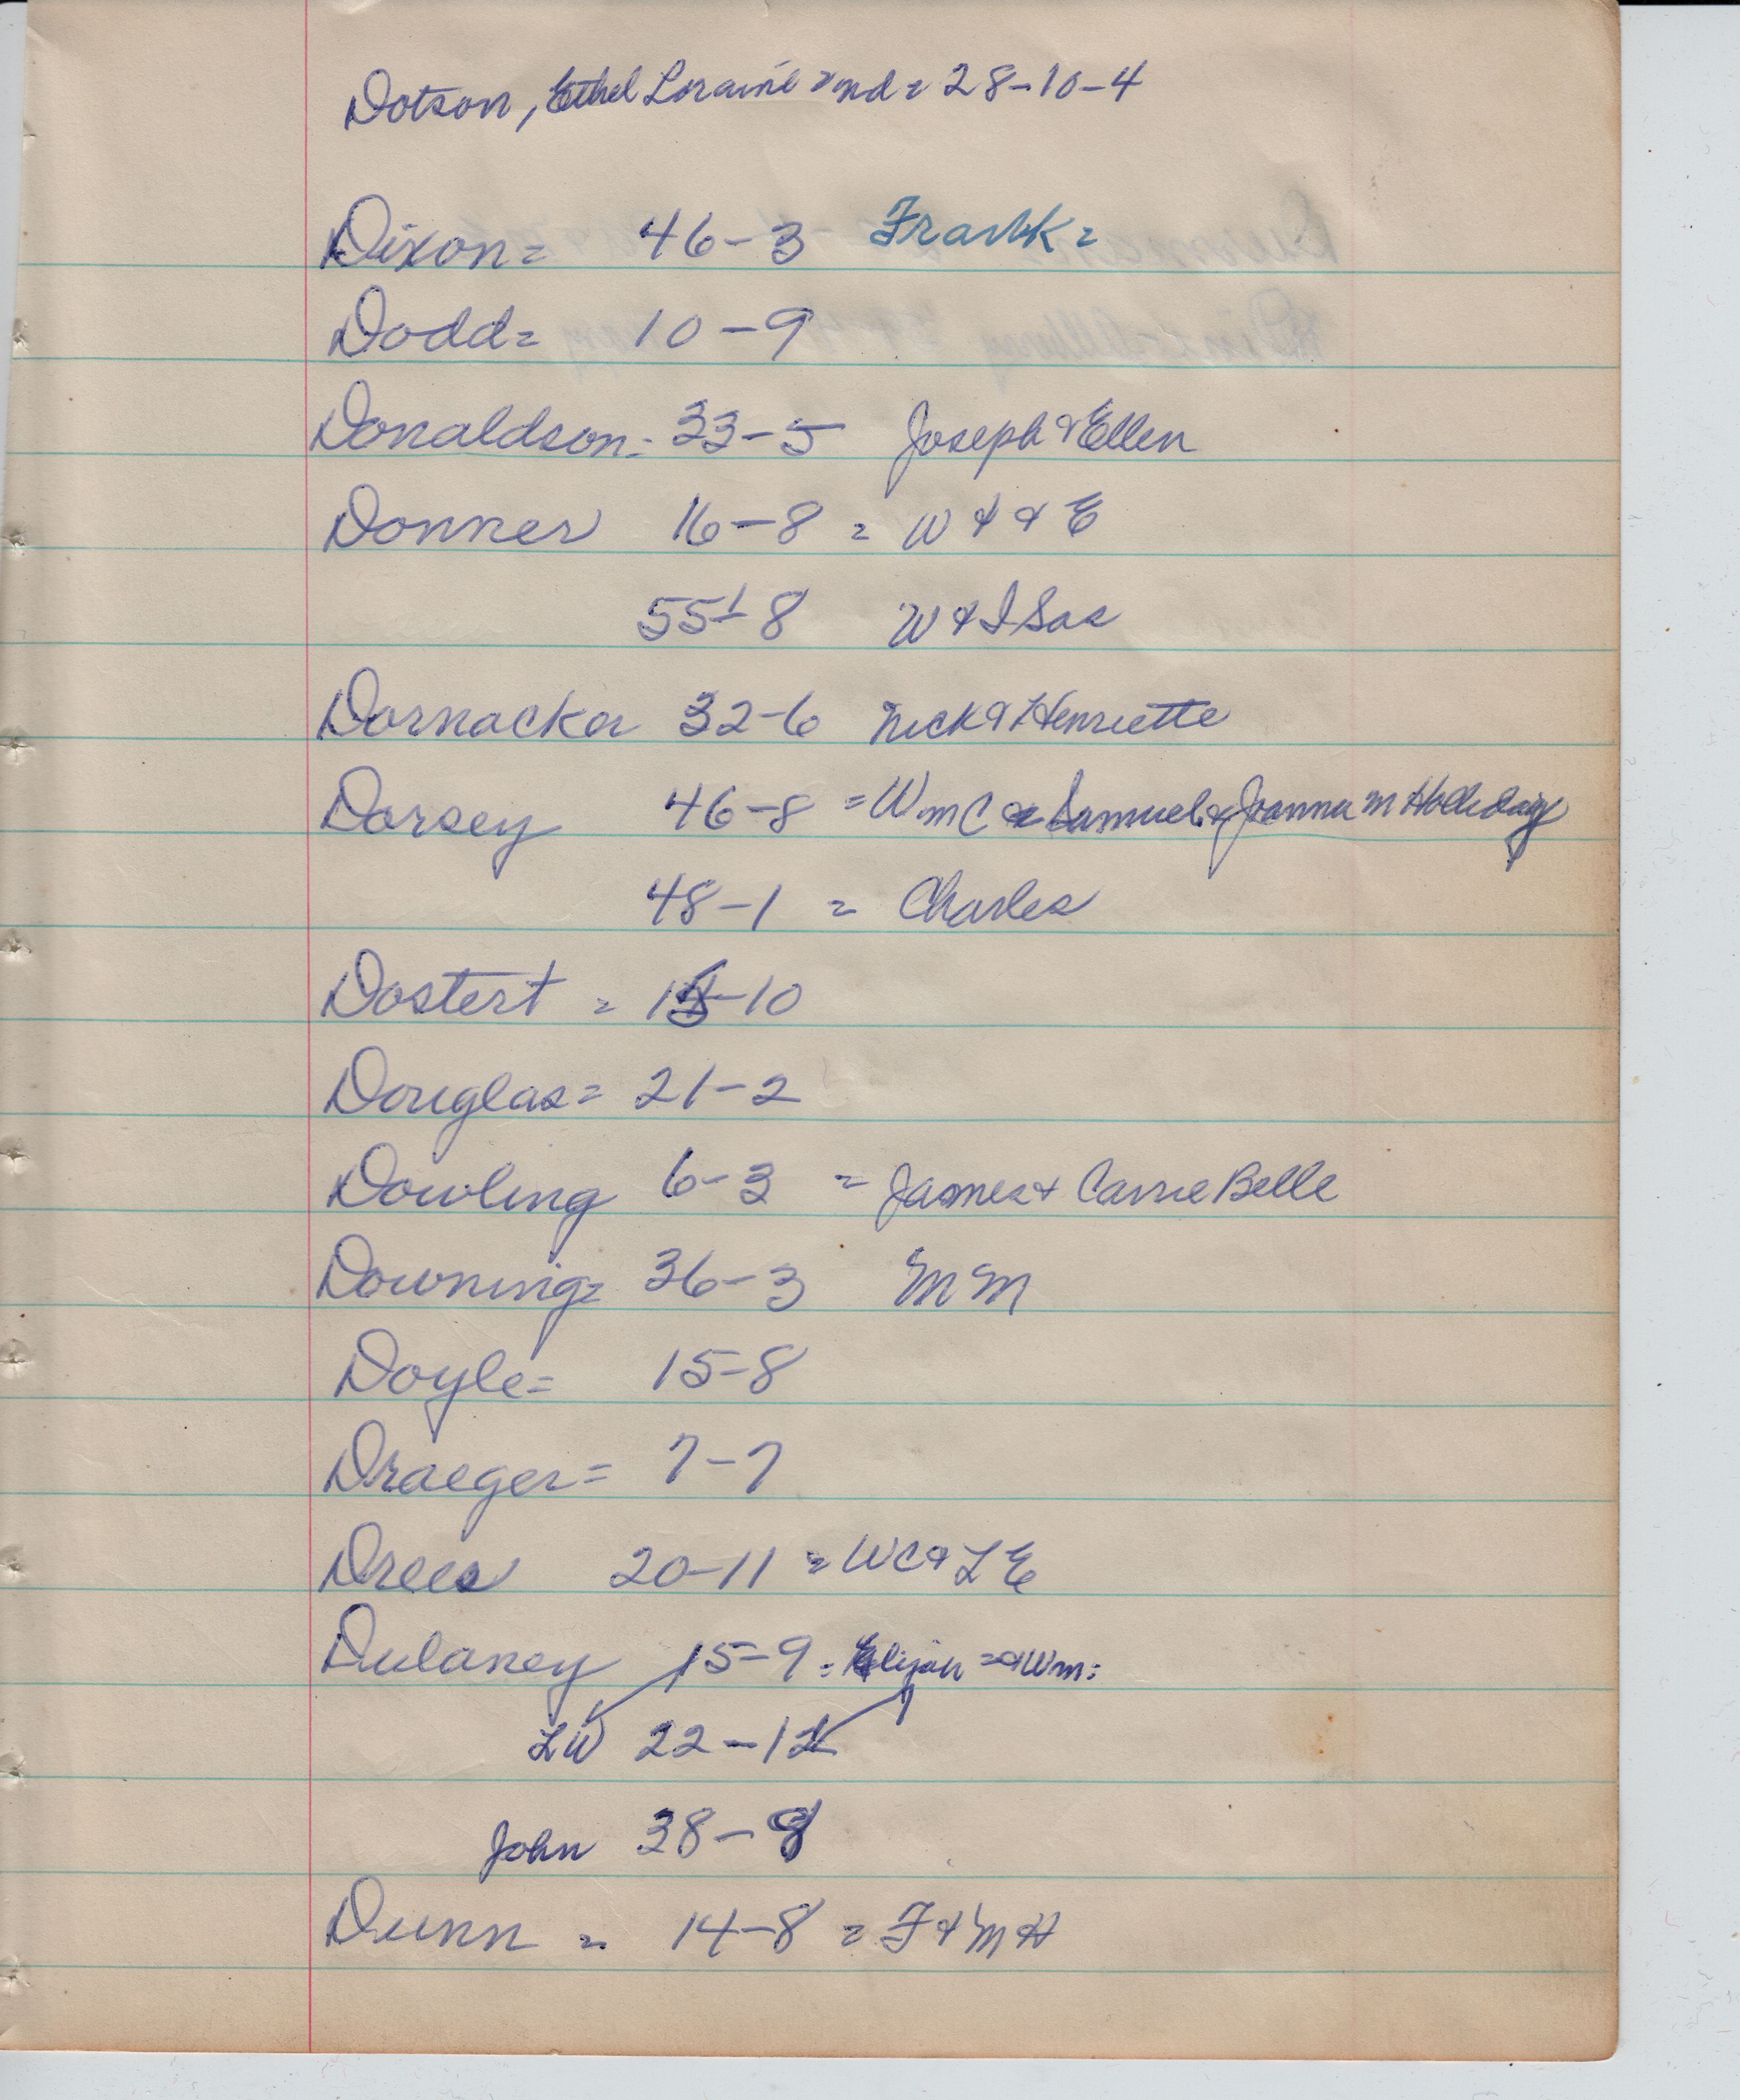 Dotson, Ethel Loraine = md = 28-10-4
Dixon = 46-3 Frank =
Dodd = 10-9
Donaldson - 33-5 Joseph & Ellen
Donner 16-8 = W & & E
55-8 W & I Sas
Dornacker 32-6 Nick & Henriette
Dorsey 46-8 = Wm C & Samuel & Joanna M Holliday
48-1 = Charles
Dostert = -10
Douglas = 21-2
Dowling 6-3 = James & Carrie Belle
Downing = 36-3 M M
Doyle = 15-8
Draeger = 7-7
Drees 20-11 = WC & L E
Dulaney 15-9 = Elijah = & Wm =
LW 22-12
John 38-
Dunn = 14-8 = F & M H